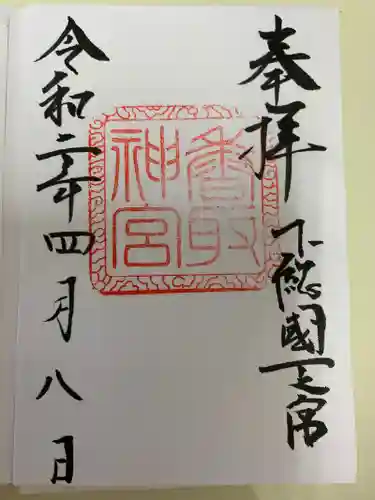 奉拝
下総國一之宮
香取
神宮
令和二年四月八日